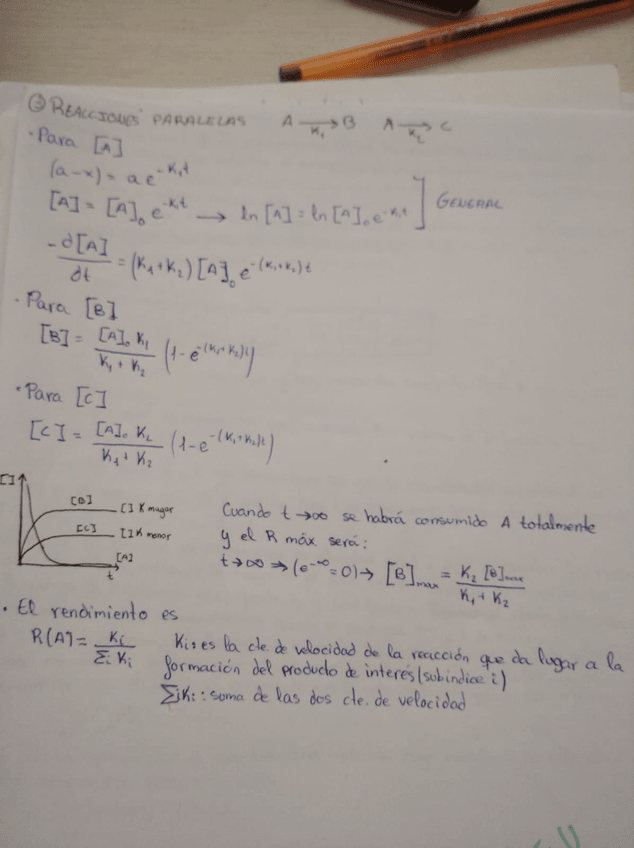 ③ REACCIONES PARALELAS A →K₁ B A →K₂ C
· Para [A]
(a-x) = a e^-K₁t
[A] = [A]₀ e^-K₁t → ln [A] = ln [A]₀ e^-K₁t ] GENERAL
-∂[A]/∂t = (K₁+K₂) [A]₀ e^-(K₁+K₂)t
· Para [B]
[B] = [A]₀ K₁ / K₁ + K₂ (1 - e^-(K₁+K₂)t)
· Para [C]
[C] = [A]₀ K₂ / K₁ + K₂ (1 - e^-(K₁+K₂)t)
[ ]
[B] [ ] K mayor
[C] [ ] K menor
[A]
t
Cuando t→∞ se habrá consumido A totalmente
y el R máx será:
t→∞ ⇒ (e^-∞ = 0) → [B]max = K₂ [B]max / K₁ + K₂
· El rendimiento es
R(A) = Ki / Σi Ki
Ki: es la cte. de velocidad de la reacción que da lugar a la
formación del producto de interés (subíndice i)
ΣiKi: suma de las dos cte. de velocidad